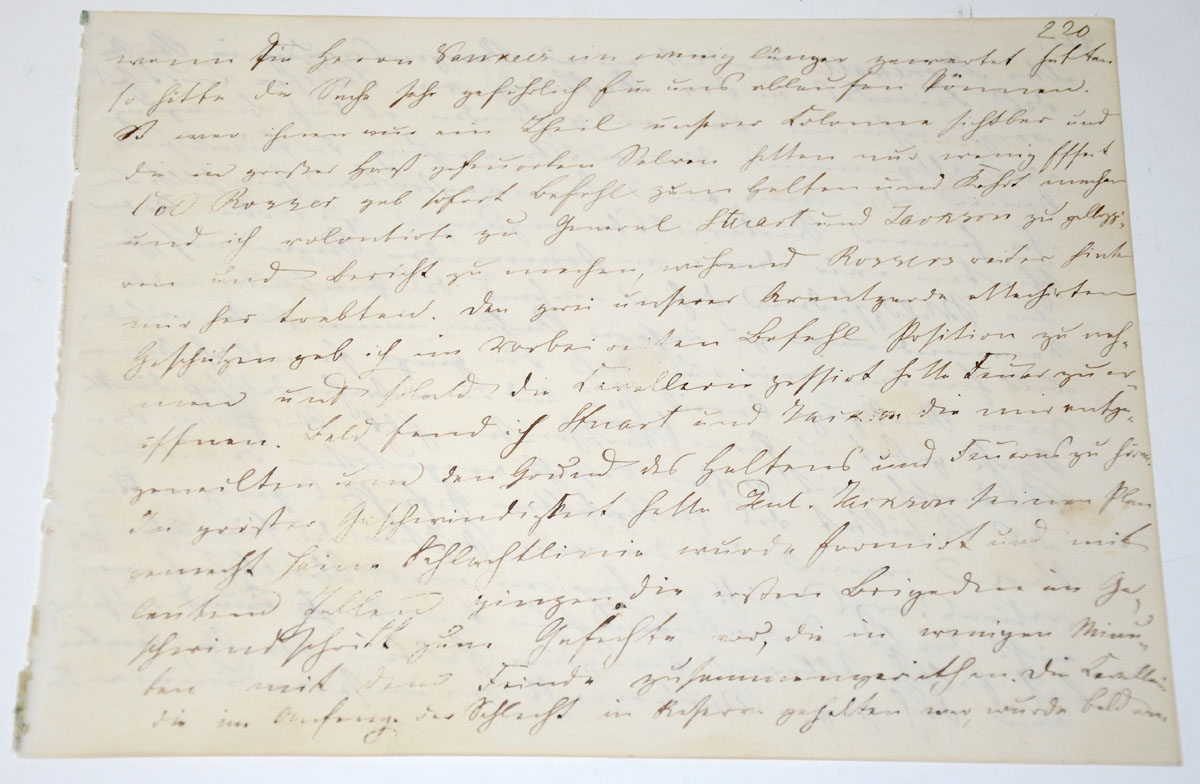 220
wenn die Herrn Yankees ein wenig länger gewartet hätten
so hätte die Sache sehr gefährlich für uns ablaufen können.
So war ihnen nur ein Theil unserer Colonne sichtbar und
die in großer Hast gefeuerten Salven hatten nur wenig Effect
Col Rosser gab sofort Befehl zum Halten und Kehrt machen
und ich volontirte zu General Stuart und Jackson zu galoppi-
ren und Bericht zu machen, während Rossers Reiter hinter
mir her trabten. Den zwei unserer Avantgarde attachirten
Geschützen gab ich im Vorbeireiten Befehl Position zu neh-
men und sobald die Cavallerie passirt hatte Feuer zu er-
öffnen. Bald fand ich Stuart und Jackson die mir entge-
geneilten um den Grund des Haltens und Feuerns zu hören
In größter Geschwindigkeit hatte Jackson seinen Plan
gemacht seine Schlachtlinie wurde formirt und mit
lautem Yellen gingen die ersten Brigaden im Ge-
schwindschritt zum Gefechte vor, die in wenigen Minu-
ten mit dem Feinde zusammengeriethen. Die Cavallerie
die im Anfange der Schlacht in Reserve gehalten war, wurde bald